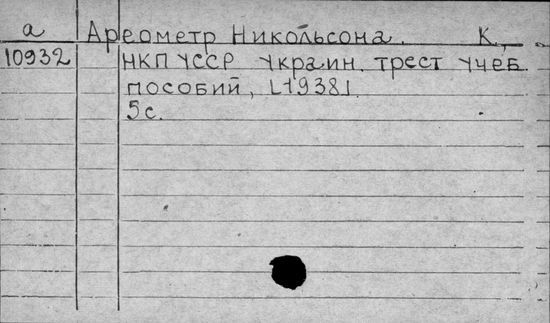 а Ареометр Никольсона. К.,
10932 НКП УССР Украин. трест учеб.
пособий, [1938]
5 с.